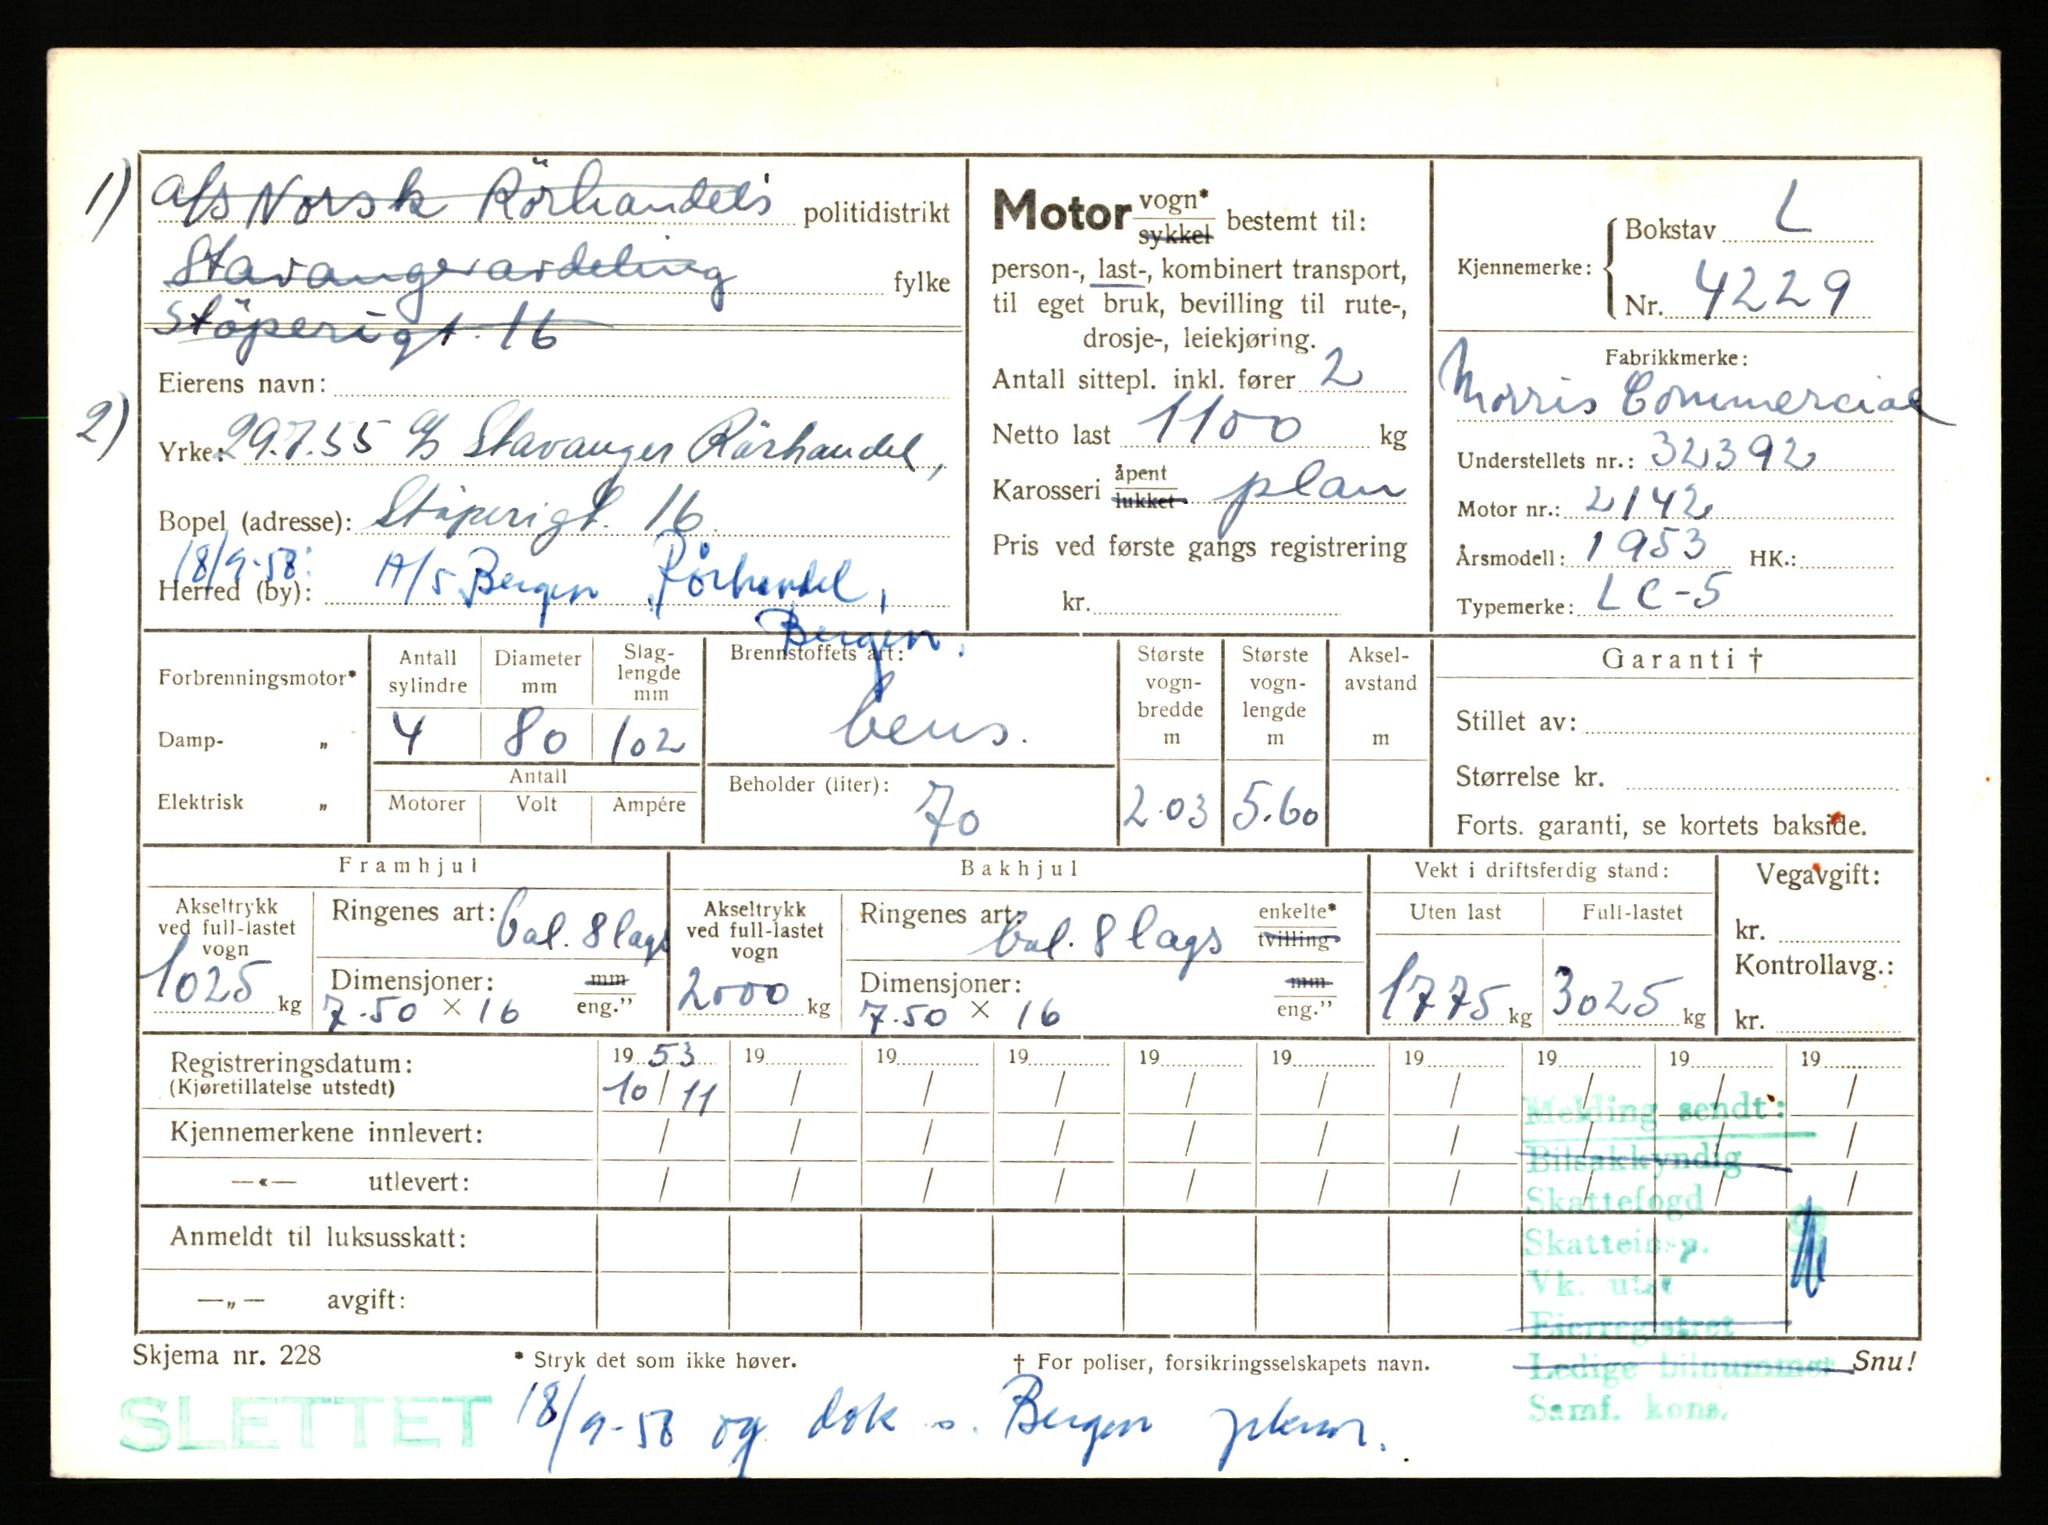 1) A/s Norsk Rörhandels politidistrikt
Stavangeravdeling fylke
Stöperigt. 16
Eierens navn:
2) Yrke: 29.7.55 A/S Stavanger Rörhandel,
Bopel (adresse): Stöperigt. 16.
18/9-58:
Herred (by): A/S Bergen Rörhandel,
Bergen.
Motor vogn* sykkel bestemt til:
person-, last-, kombinert transport,
til eget bruk, bevilling til rute-,
drosje-, leiekjøring.
Antall sittepl. inkl. fører 2
Netto last 1100 kg
Karosseri åpent lukket plan
Pris ved første gangs registrering
kr.
Kjennemerke: Bokstav L
Nr. 4229
Fabrikkmerke:
Morris Commercial
Understellets nr.: 32392
Motor nr.: 2142
Årsmodell: 1953 HK.:
Typemerke: LC-5
Forbrenningsmotor*
Damp- „
Elektrisk „
Antall sylindre
4
Diameter mm
80
Slaglengde mm
102
Antall
Motorer Volt Ampére
Brennstoffets art:
bens.
Beholder (liter):
70
Største vogn-bredde m
2.03
Største vogn-lengde m
5.60
Aksel-avstand m
Garanti †
Stillet av:
Størrelse kr.
Forts. garanti, se kortets bakside.
Framhjul
Akseltrykk ved full-lastet vogn
1025 kg
Ringenes art: bal. 8 lags
Dimensjoner: mm
7.50 × 16 eng.”
Bakhjul
Akseltrykk ved full-lastet vogn
2000 kg
Ringenes art: bal. 8 lags enkelte* tvilling
Dimensjoner: mm
7.50 × 16 eng.”
Vekt i driftsferdig stand:
Uten last Full-lastet
1775 kg 3025 kg
Vegavgift:
kr.
Kontrollavg.:
kr.
Registreringsdatum: 19 53 19 19 19 19 19 19 19 19 19
(Kjøretillatelse utstedt) 10/11 / / / / / / / / /
Kjennemerkene innlevert: / / / / / / / / / /
—«— utlevert: / / / / / / / / / /
Anmeldt til luksusskatt:
—„— avgift:
Melding sendt:
Bilsakkyndig
Skattefogd
Skatteinsp.
Vk. utst
Eierregistret
Ledige bilnummer
Samf. kons.
Skjema nr. 228 * Stryk det som ikke høver. † For poliser, forsikringsselskapets navn. Snu!
SLETTET 18/9-58 og dok s. Bergen